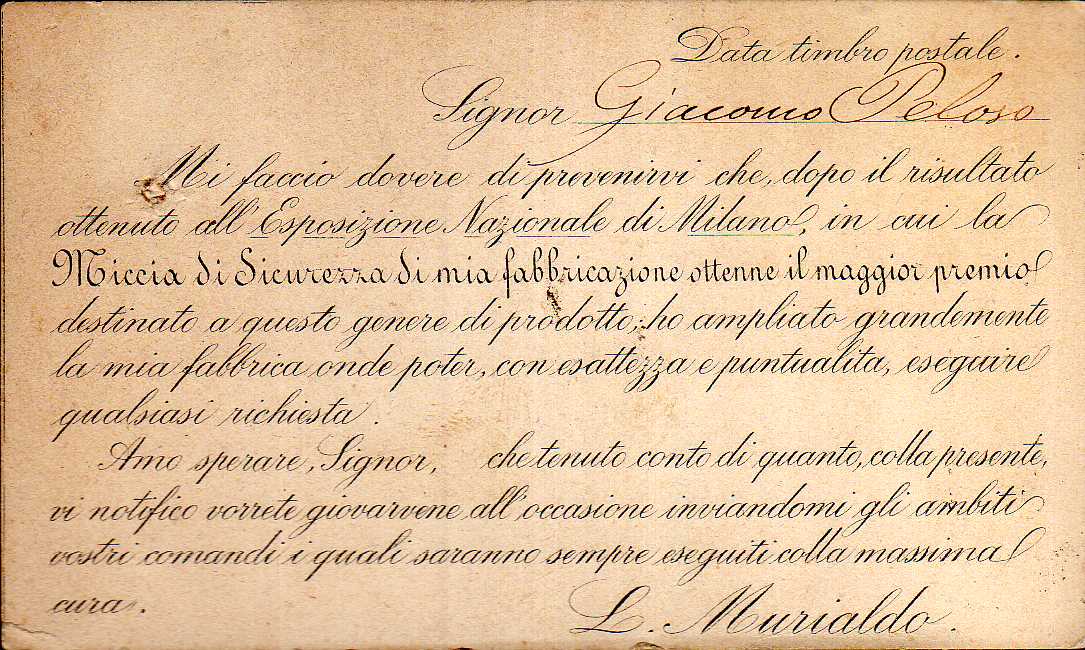 Data timbro postale.
Signor Giacomo Peloso
Mi faccio dovere di prevenirvi che, dopo il risultato
ottenuto all' Esposizione Nazionale di Milano, in cui la
Miccia di Sicurezza di mia fabbricazione ottenne il maggior premio
destinato a questo genere di prodotto, ho ampliato grandemente
la mia fabbrica onde poter, con esattezza e puntualita, eseguire
qualsiasi richiesta.
Amo sperare, Signor, che tenuto conto di quanto, colla presente,
vi notifico vorrete giovarvene all' occasione inviandomi gli ambiti
vostri comandi i quali saranno sempre eseguiti colla massima
cura.
L. Murialdo.